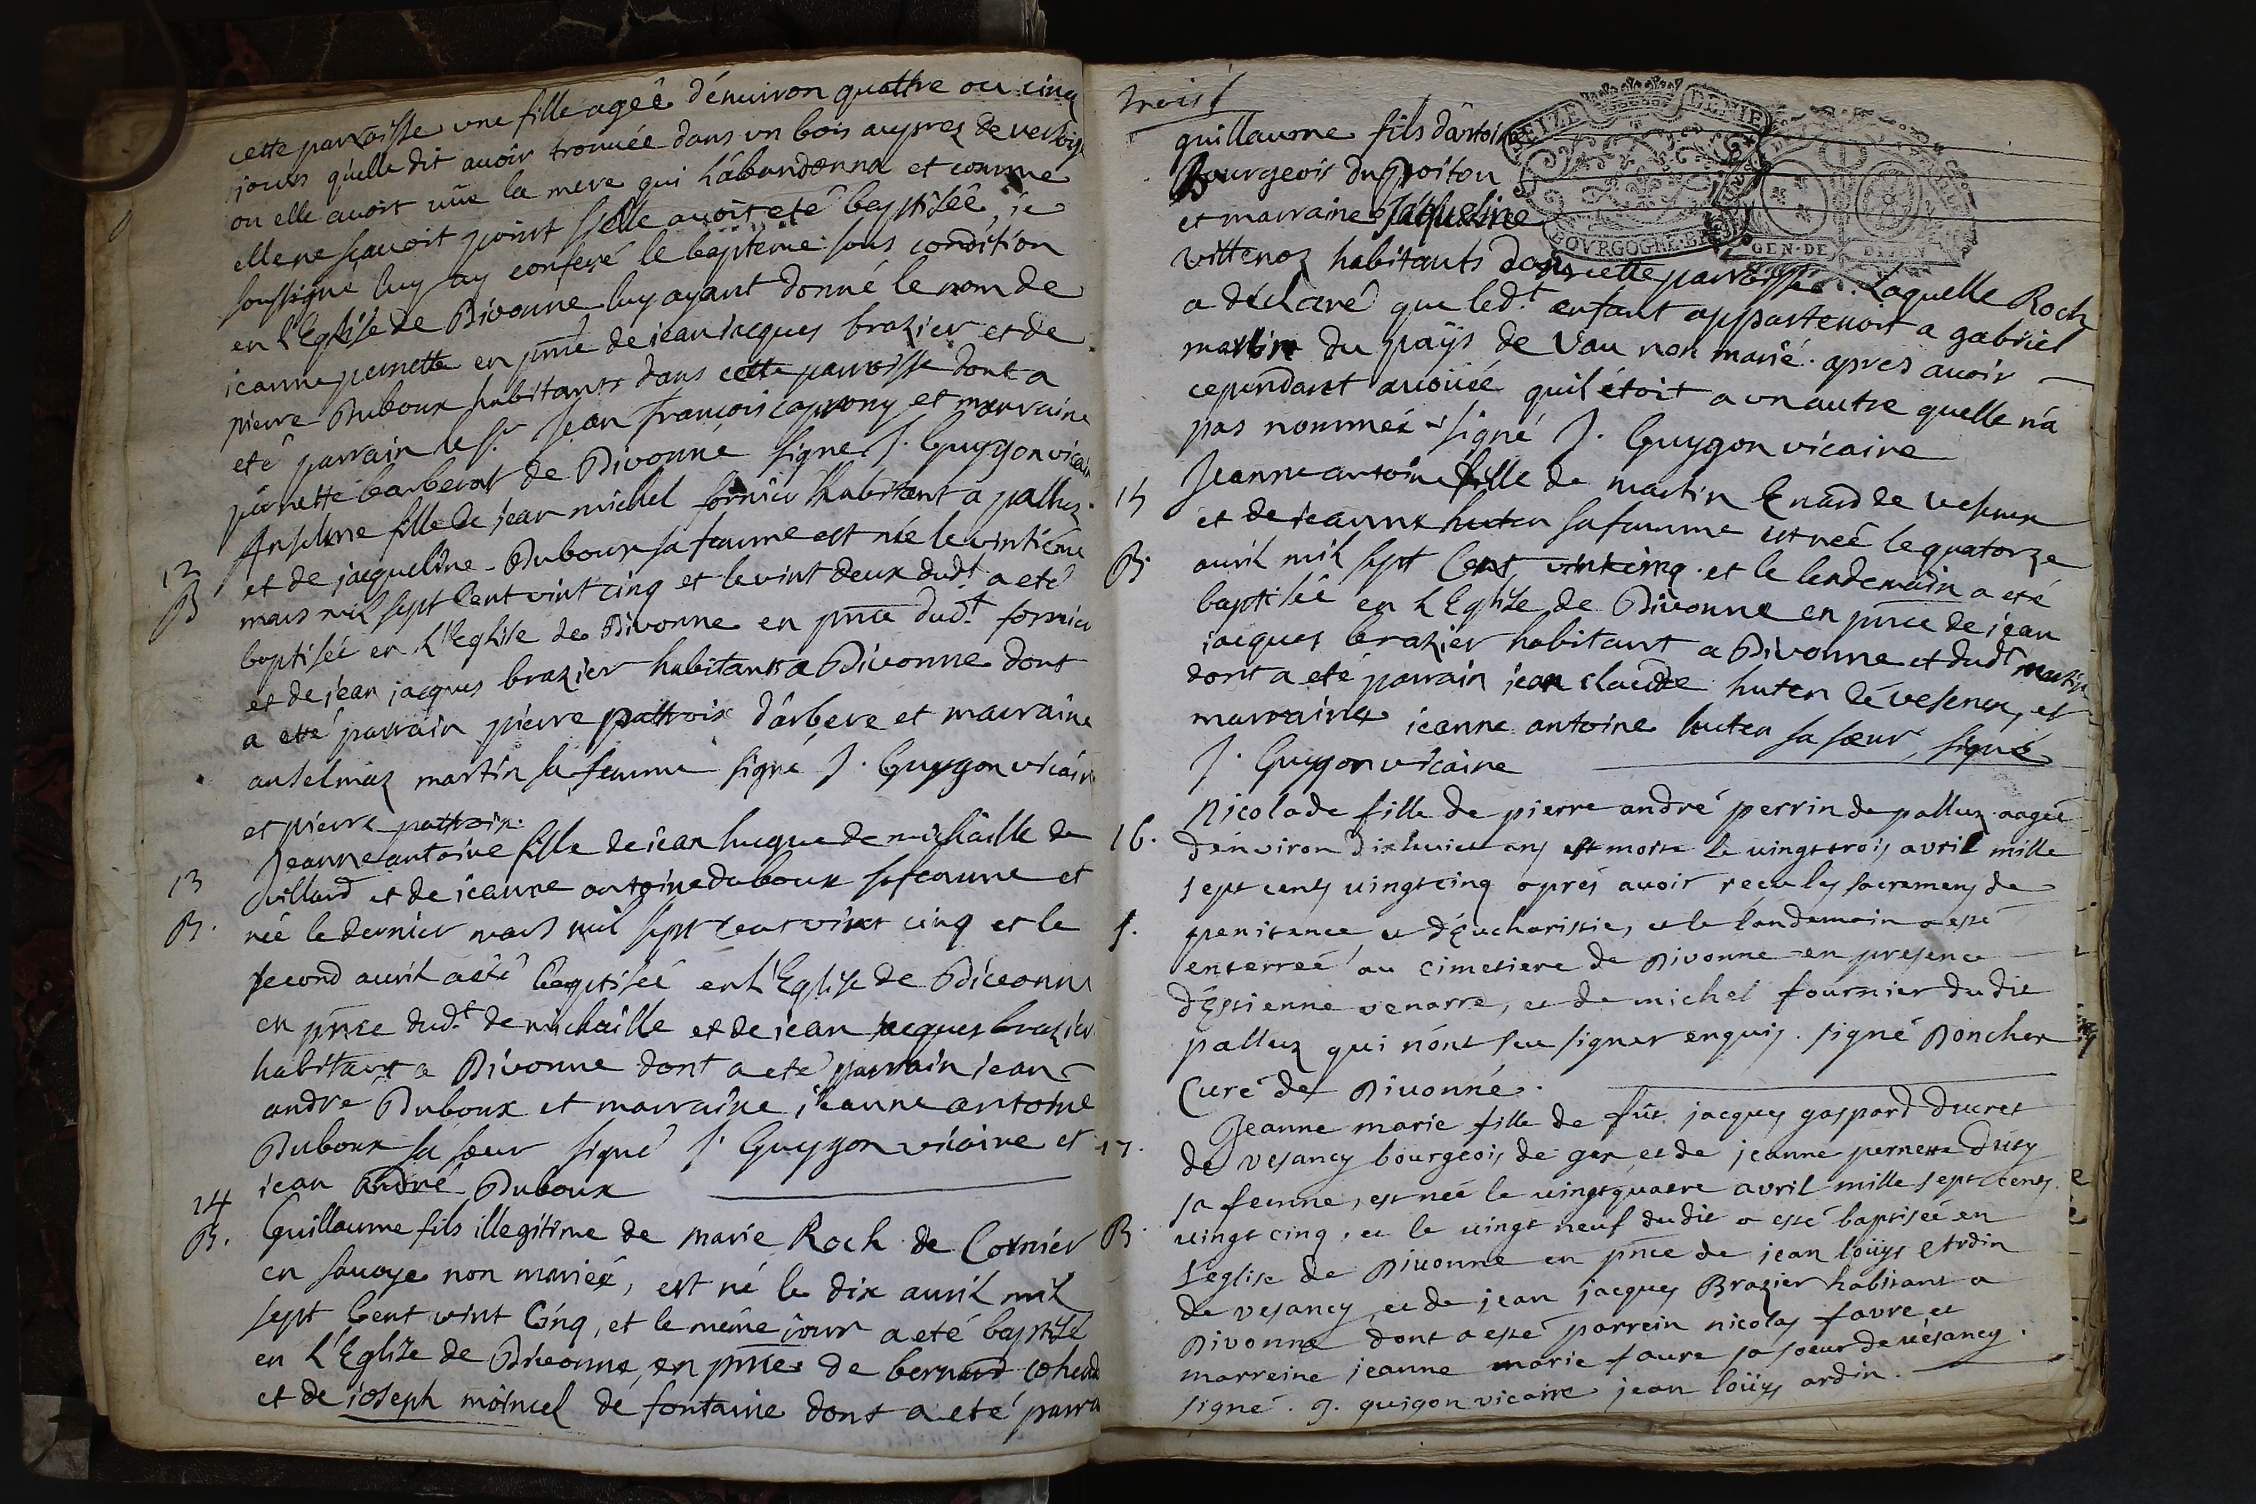 cette parroisse une fille ageé d'environ quattre ou cinq
jours qu'elle dit avoir trouvée dans un bois auprez de versoy
ou elle avoit vüe la mere qui l'abandonna et comme
elle ne sçavoit point si elle avoit eté baptisée, je
soussigné luy ay conferé le baptème sous condition
en l'Eglise de Divonne luy ayant donné le nom de
jeanne pernette en pnce de jean jacques brazier et de
pierre Duboux habitants dans cette parroisse dont a
eté parrain le Sr. Jean françois capvony et marraine
pernette barberat de Divonne signé J. Guygon vicaire
12
Anselme fille de jean michel fornier habitant a palluz
B
et de jacqueline Duboux sa femme est née le vintiéme
mars mil sept Cent vint cinq et le vint deux dudt a eté
baptisée en l'Eglise de Divonne en pnce dudt. fornier
et de jean jacques brazier habitants a Divonne dont
a eté parrain pierre pattroix d'arbere et marraine
anselmaz martin sa femme signé J. Guygon vicaire
et pierre pattroix.
13
Jeanne antoine fille de jean huque de michaille de
villard et de jeanne antoine duboux sa femme et
B.
née le dernier mars mil sept Cent vint cinq et le
second avril a eté baptisée en l'Eglise de Divonne
en pnce dudt. de michaille et de jean jacques brazier
habitant a Divonne dont a eté parrain jean
andre Duboux et marraine jeanne antoine
Duboux sa sœur signé J. Guygon vicaire et
jean andré Duboux
14
B.
Guillaume fils illegitime de marie Roch de Cornier
en savoye non mariée, est né le dix avril mil
sept Cent vint Cinq, et le même jour a eté baptisé
en l'Eglise de Divonne, en pnce de bernard cohend
et de joseph moinuel de fontaine dont a eté parra
trois
guillaume fils d'antoine
Bourgeois du Poitou
et marraine Jaqueline
vittenoz habitants dans cette parroisse. Laquelle Roch
a déclaré que ledt. enfant appartenoit a gabriel
martin du païs de Vau non marié. apres avoir
cependant avoüée qu'il étoit a un autre qu'elle n'a
pas nommée signé J. Guygon vicaire
15
Jeanne antoine fille de martin Enard de vesenex
et de jeanne huten sa femme est neé le quatorze
B.
avril mil sept Cent vint cinq. et le lendemain a eté
baptisée en l'Eglise de Divonne en pnce de jean
jacques brazier habitant a Divonne et dudt martin
dont a eté parrain jean claude huten de vesenex, et
marraine jeanne antoine huten sa sœur, signé
J. Guygon vicaire
16.
Nicolade fille de pierre andré perrin de palluz aageé
d'environ dixhuict ans est morte le vingt trois avril mille
sept cents vingt cinq aprés avoir receu les sacremens de
S.
penitence et d'Eucharistie, et le landemain a esté
enterreé au cimetiere de Divonne en presence
d'Estienne venarre, et de michel fournier du dit
palluz qui n'ont sceu signer enquis. signé Poncher
Curé de Divonne.
17.
Jeanne marie fille de fût jacques gaspard ducret
de vesancy bourgeois de gex et de jeanne pernette Dusy
sa femme, est neé le vingtquatre avril mille sept cents
B
vingt cinq, et le vingt neuf dudit a esté baptiseé en
l'eglise de Divonne en pnce de jean loüys Ardin
de vesancy, et de jean jacques Brazier habitant a
Divonne dont a esté parrein nicolas favre et
marreine jeanne marie favre sa soeur de vésancy.
signé. J. guigon vicaire jean loüys ardin.
SEIZE DENIERS
BOVRGOGNE BRESSE
GEN. DE DIJON